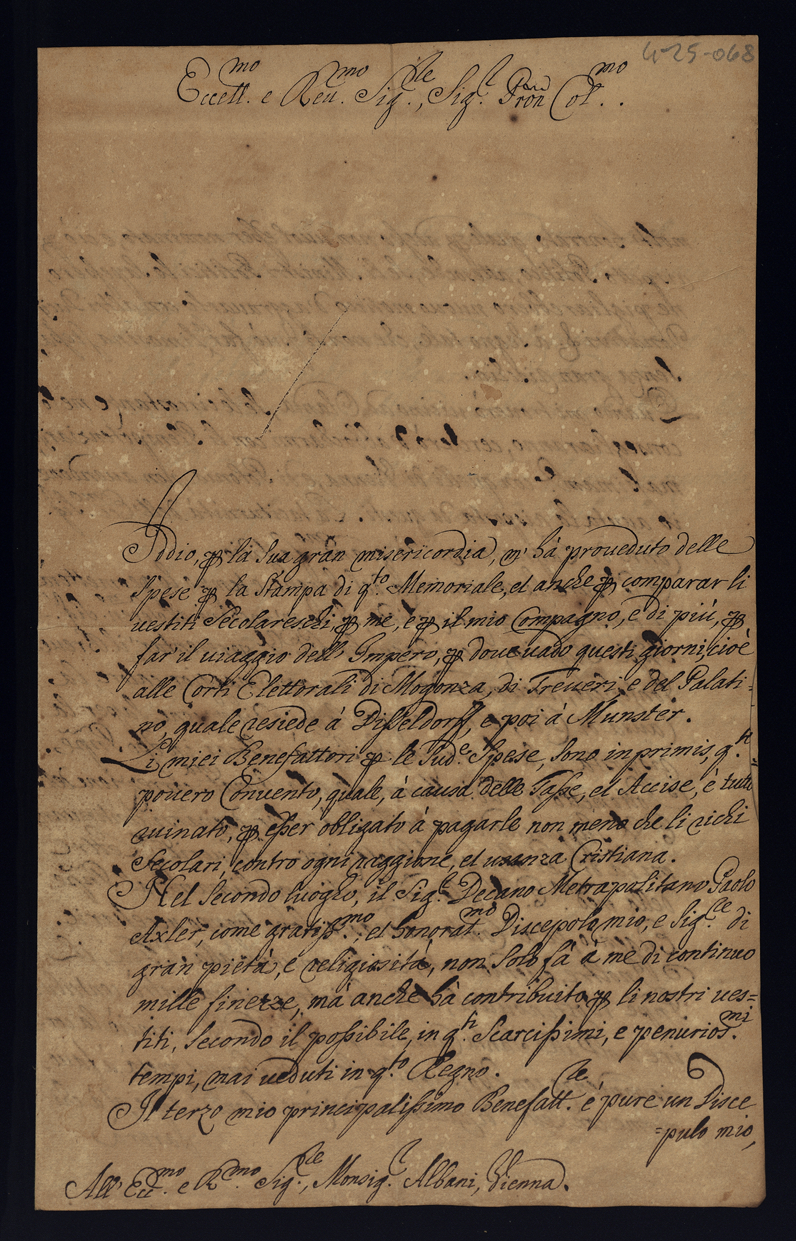 4-25-068
Eccell.mo e Reu.mo Sig.re, Sig.r Pron Col.mo
Iddio, p la sua gran misericordia, m' hà proueduto delle
spese p la stampa di q.to Memoriale, et anche p comparar li
uestiti secolareschi, p me, e p il mio Compagno, e di più, p
far il uiaggio dell' Impero, p doue uado questi giorni, cioè
alle Corti Elettorali di Mogonza, di Treueri, e del Palati-
no, quale resiede à Disseldorff, e poi à Munster.
Li miei Benefattori p le sud.e spese, sono in primis, q.ti
pouero Conuento, quale, à causa delle Tasse, et Accise, è tutto
ruinato, p esser obligato à pagarle non meno che li richi
secolari, contro ogni raggione, et usanza Cristiana.
Nel secondo luogho, il Sig.r Decano Metrapolitano Paolo
Axler, come gratiss.mo, et honorat.mo Discepolo mio, e Sig.re di
gran pietà, e religiosità, non solo fà à me di continuo
mille finezze, mà anche hà contribuito p li nostri ues=
titi, secondo il possibile, in q.ti scarcissimi, e penurios.mi
tempi, mai ueduti in q.to Regno.
Il terzo mio principalissimo Benefatt.re é pure un Disce
=pulo mio,
All' Ecc.mo e R.mo Sig.re, Monsig.r Albani, Vienna.